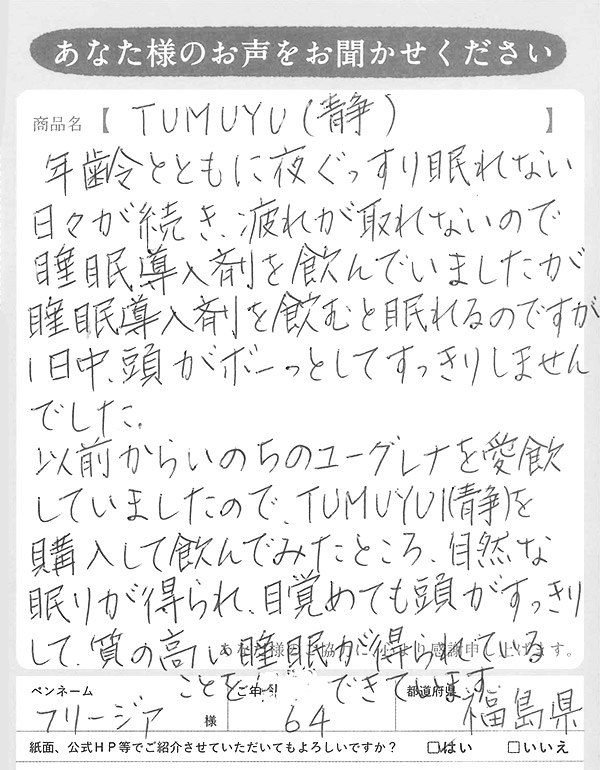 あなた様のお声をお聞かせください
商品名【 TUMUYU(静) 】
年齢とともに夜ぐっすり眠れない
日々が続き、疲れが取れないので
睡眠導入剤を飲んでいましたが
睡眠導入剤を飲むと眠れるのですが
1日中、頭がボーっとしてすっきりしません
でした。
以前からいのちのユーグレナを愛飲
していましたので、TUMUYU(静)を
購入して飲んでみたところ、自然な
眠りが得られ、目覚めても頭がすっきり
して、質の高い睡眠が得られている
あなた様のご協力に心より感謝申し上げます。
ことを できています
ペンネーム ご年 都道府県
フリージア 様 64 福島県
紙面、公式HP等でご紹介させていただいてもよろしいですか? □はい □いいえ